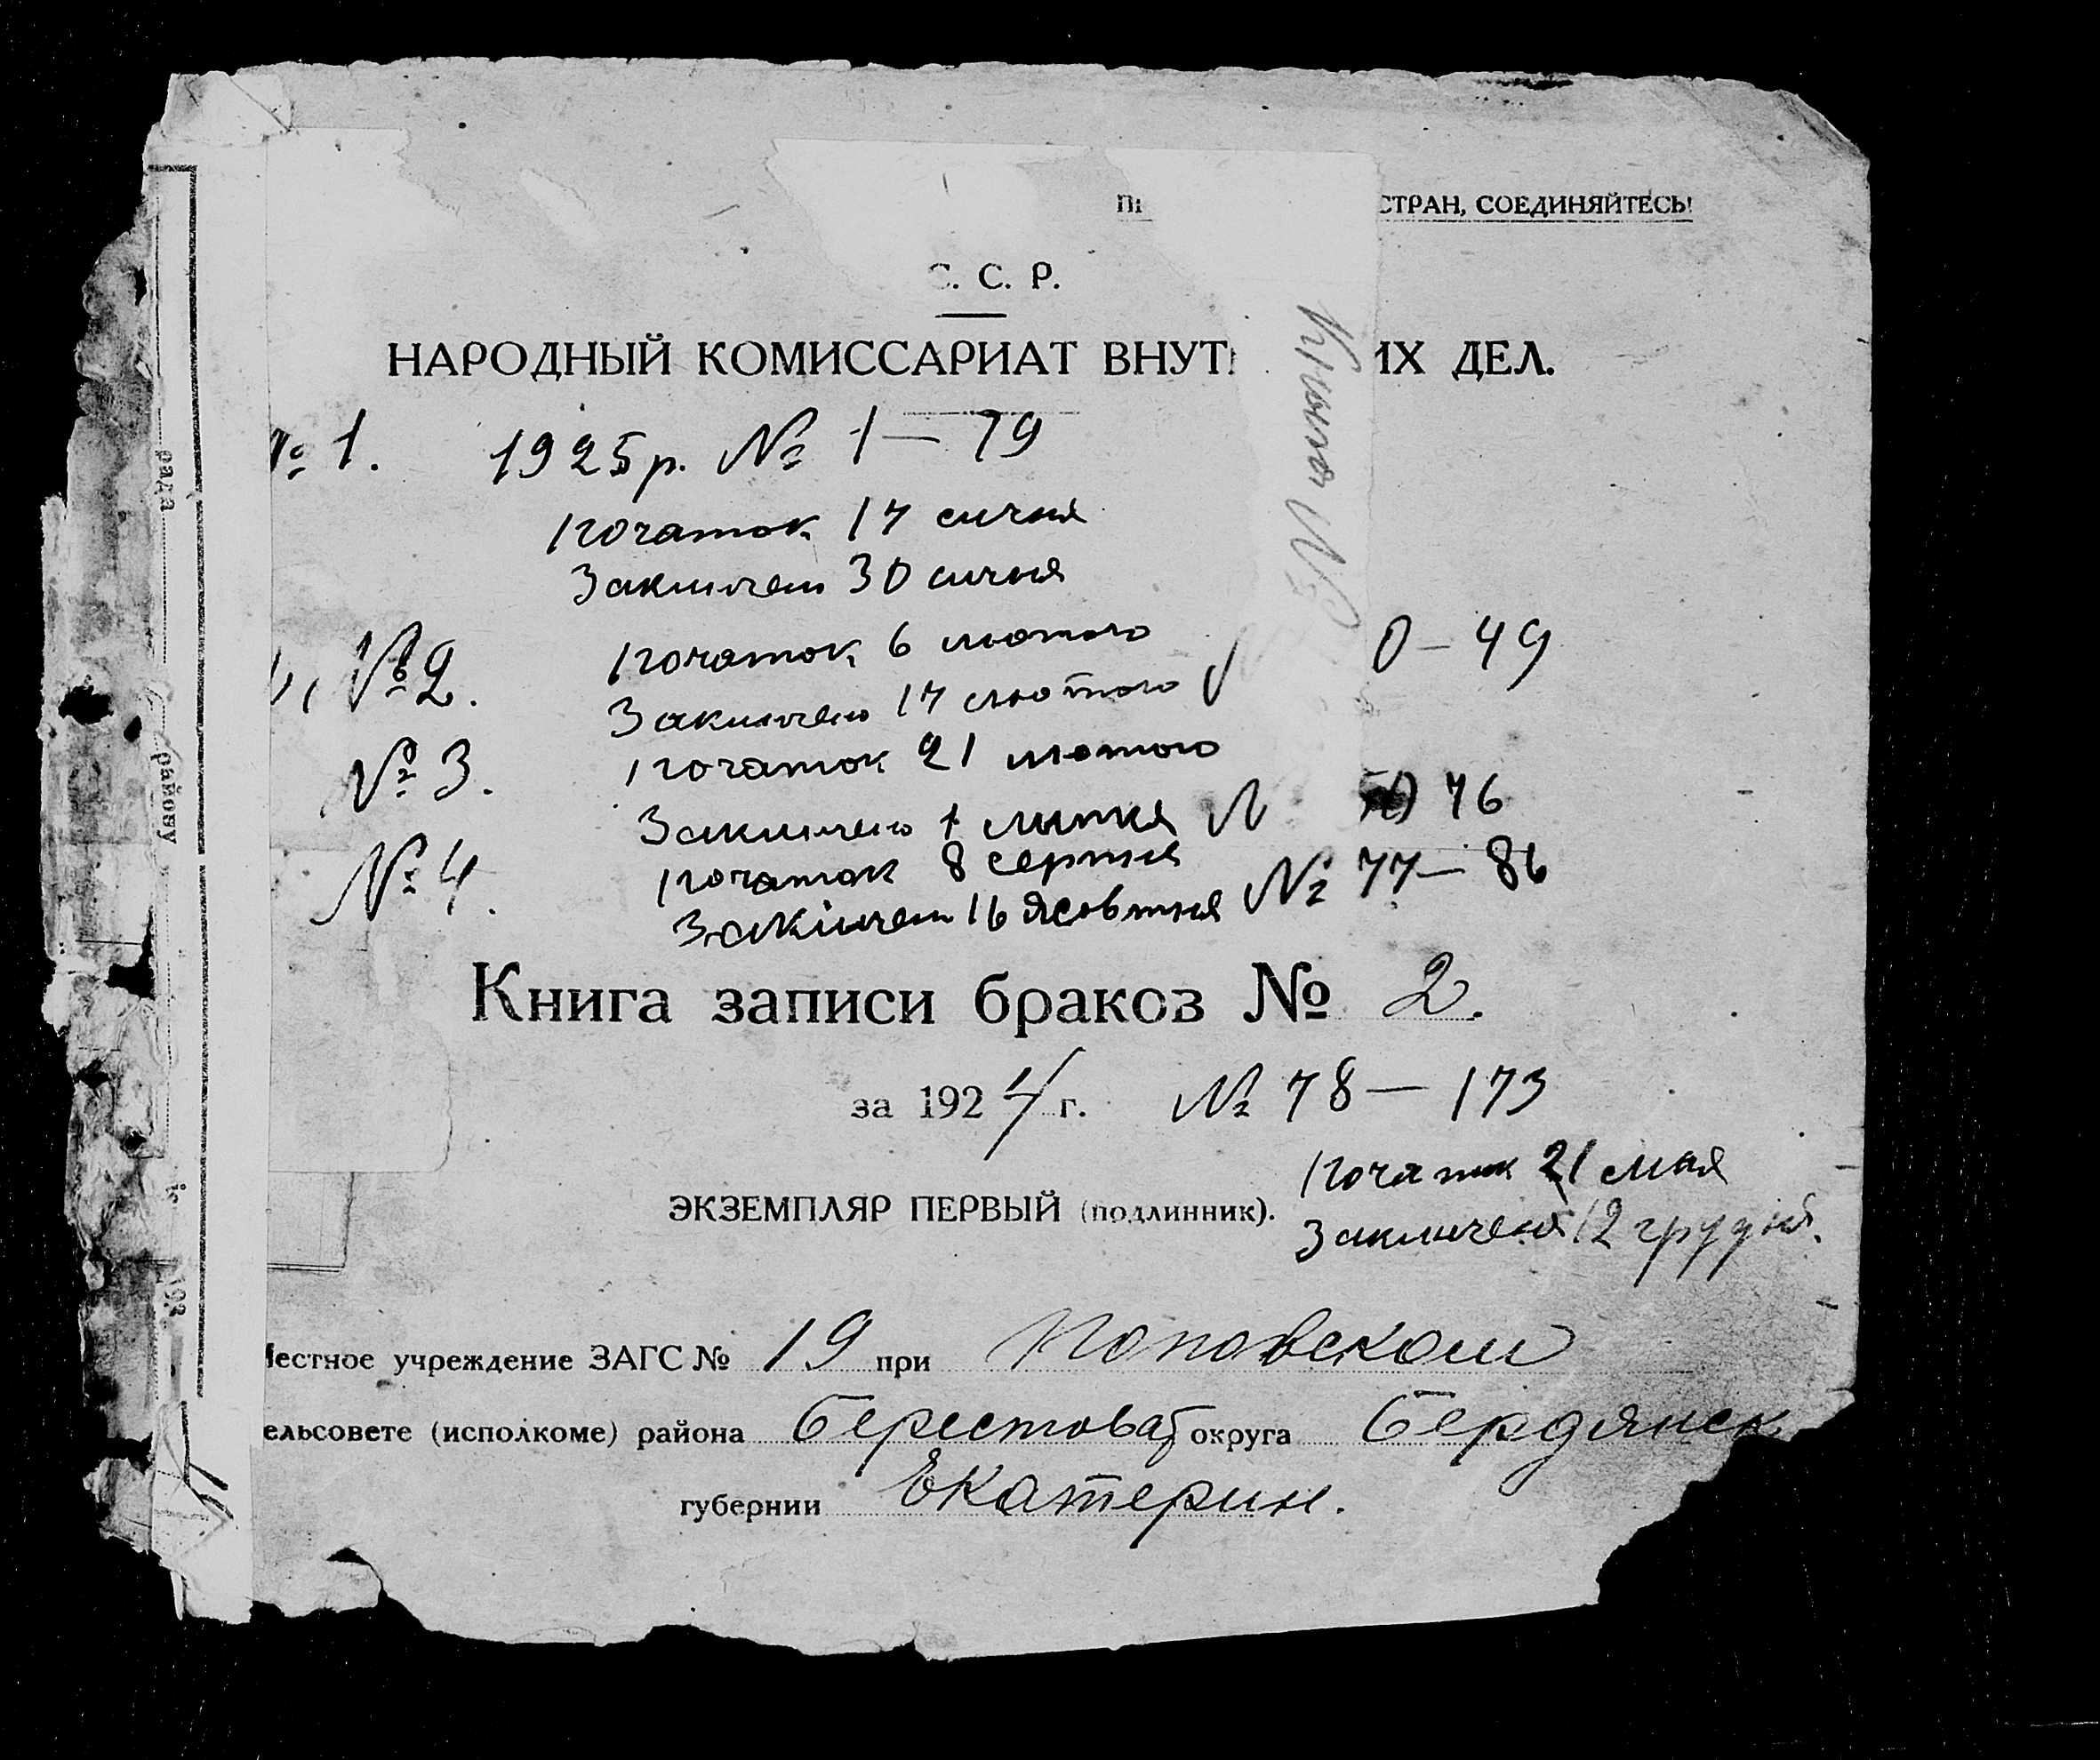 СТРАН, СОЕДИНЯЙТЕСЬ!
С. С. Р.
НАРОДНЫЙ КОМИССАРИАТ ВНУТ ИХ ДЕЛ.
№ 1. 1925 р. № 1 — 79
початок 17 сичня
Закинчено 30 сичня
№ 2. початок 6 лютого
Закинчено 17 лютого 0 — 49
№ 3. початок 21 лютого
Закинчено 1 липня 50 76
№ 4. початок 8 серпня
Закінчено 16 жовтня № 77 — 86
Книга записи браков № 2.
за 1924 г. № 78 — 173
початок 21 мая
ЭКЗЕМПЛЯР ПЕРВЫЙ (подлинник).
Заключена 12 грудня.
Местное учреждение ЗАГС № 19 при Поповском
ельсовете (исполкоме) района Берестоват округа Бердянск
губернии Екатерин.
Книга №
рада
району
192